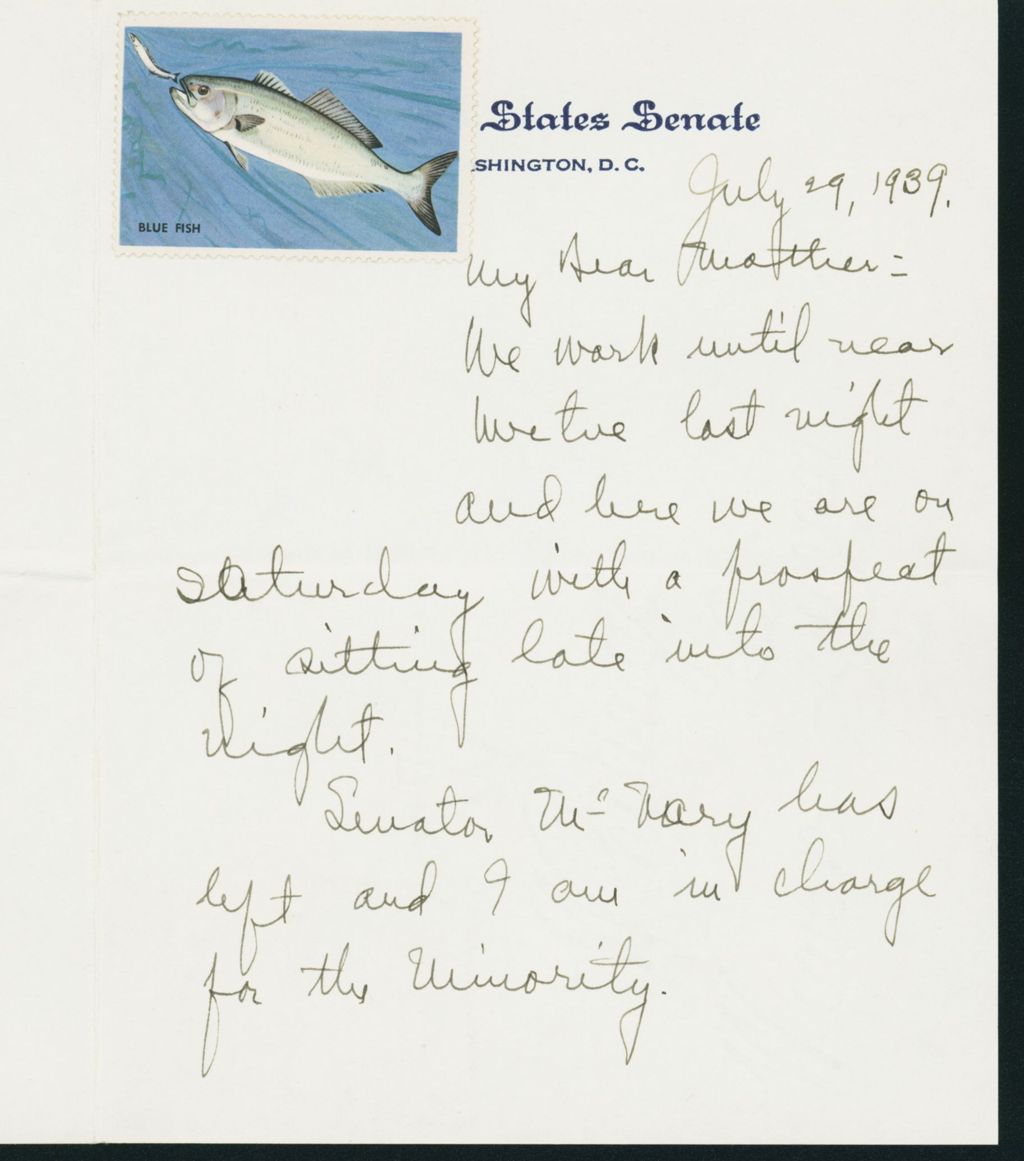 BLUE FISH
States Senate
SHINGTON, D. C.
July 29, 1939.
My Dear Mother =
We work until near
twelve last night
and here we are on
Saturday with a prospect
of sitting late into the
night.
Senator McNary has
left and I am in charge
for the Minority.